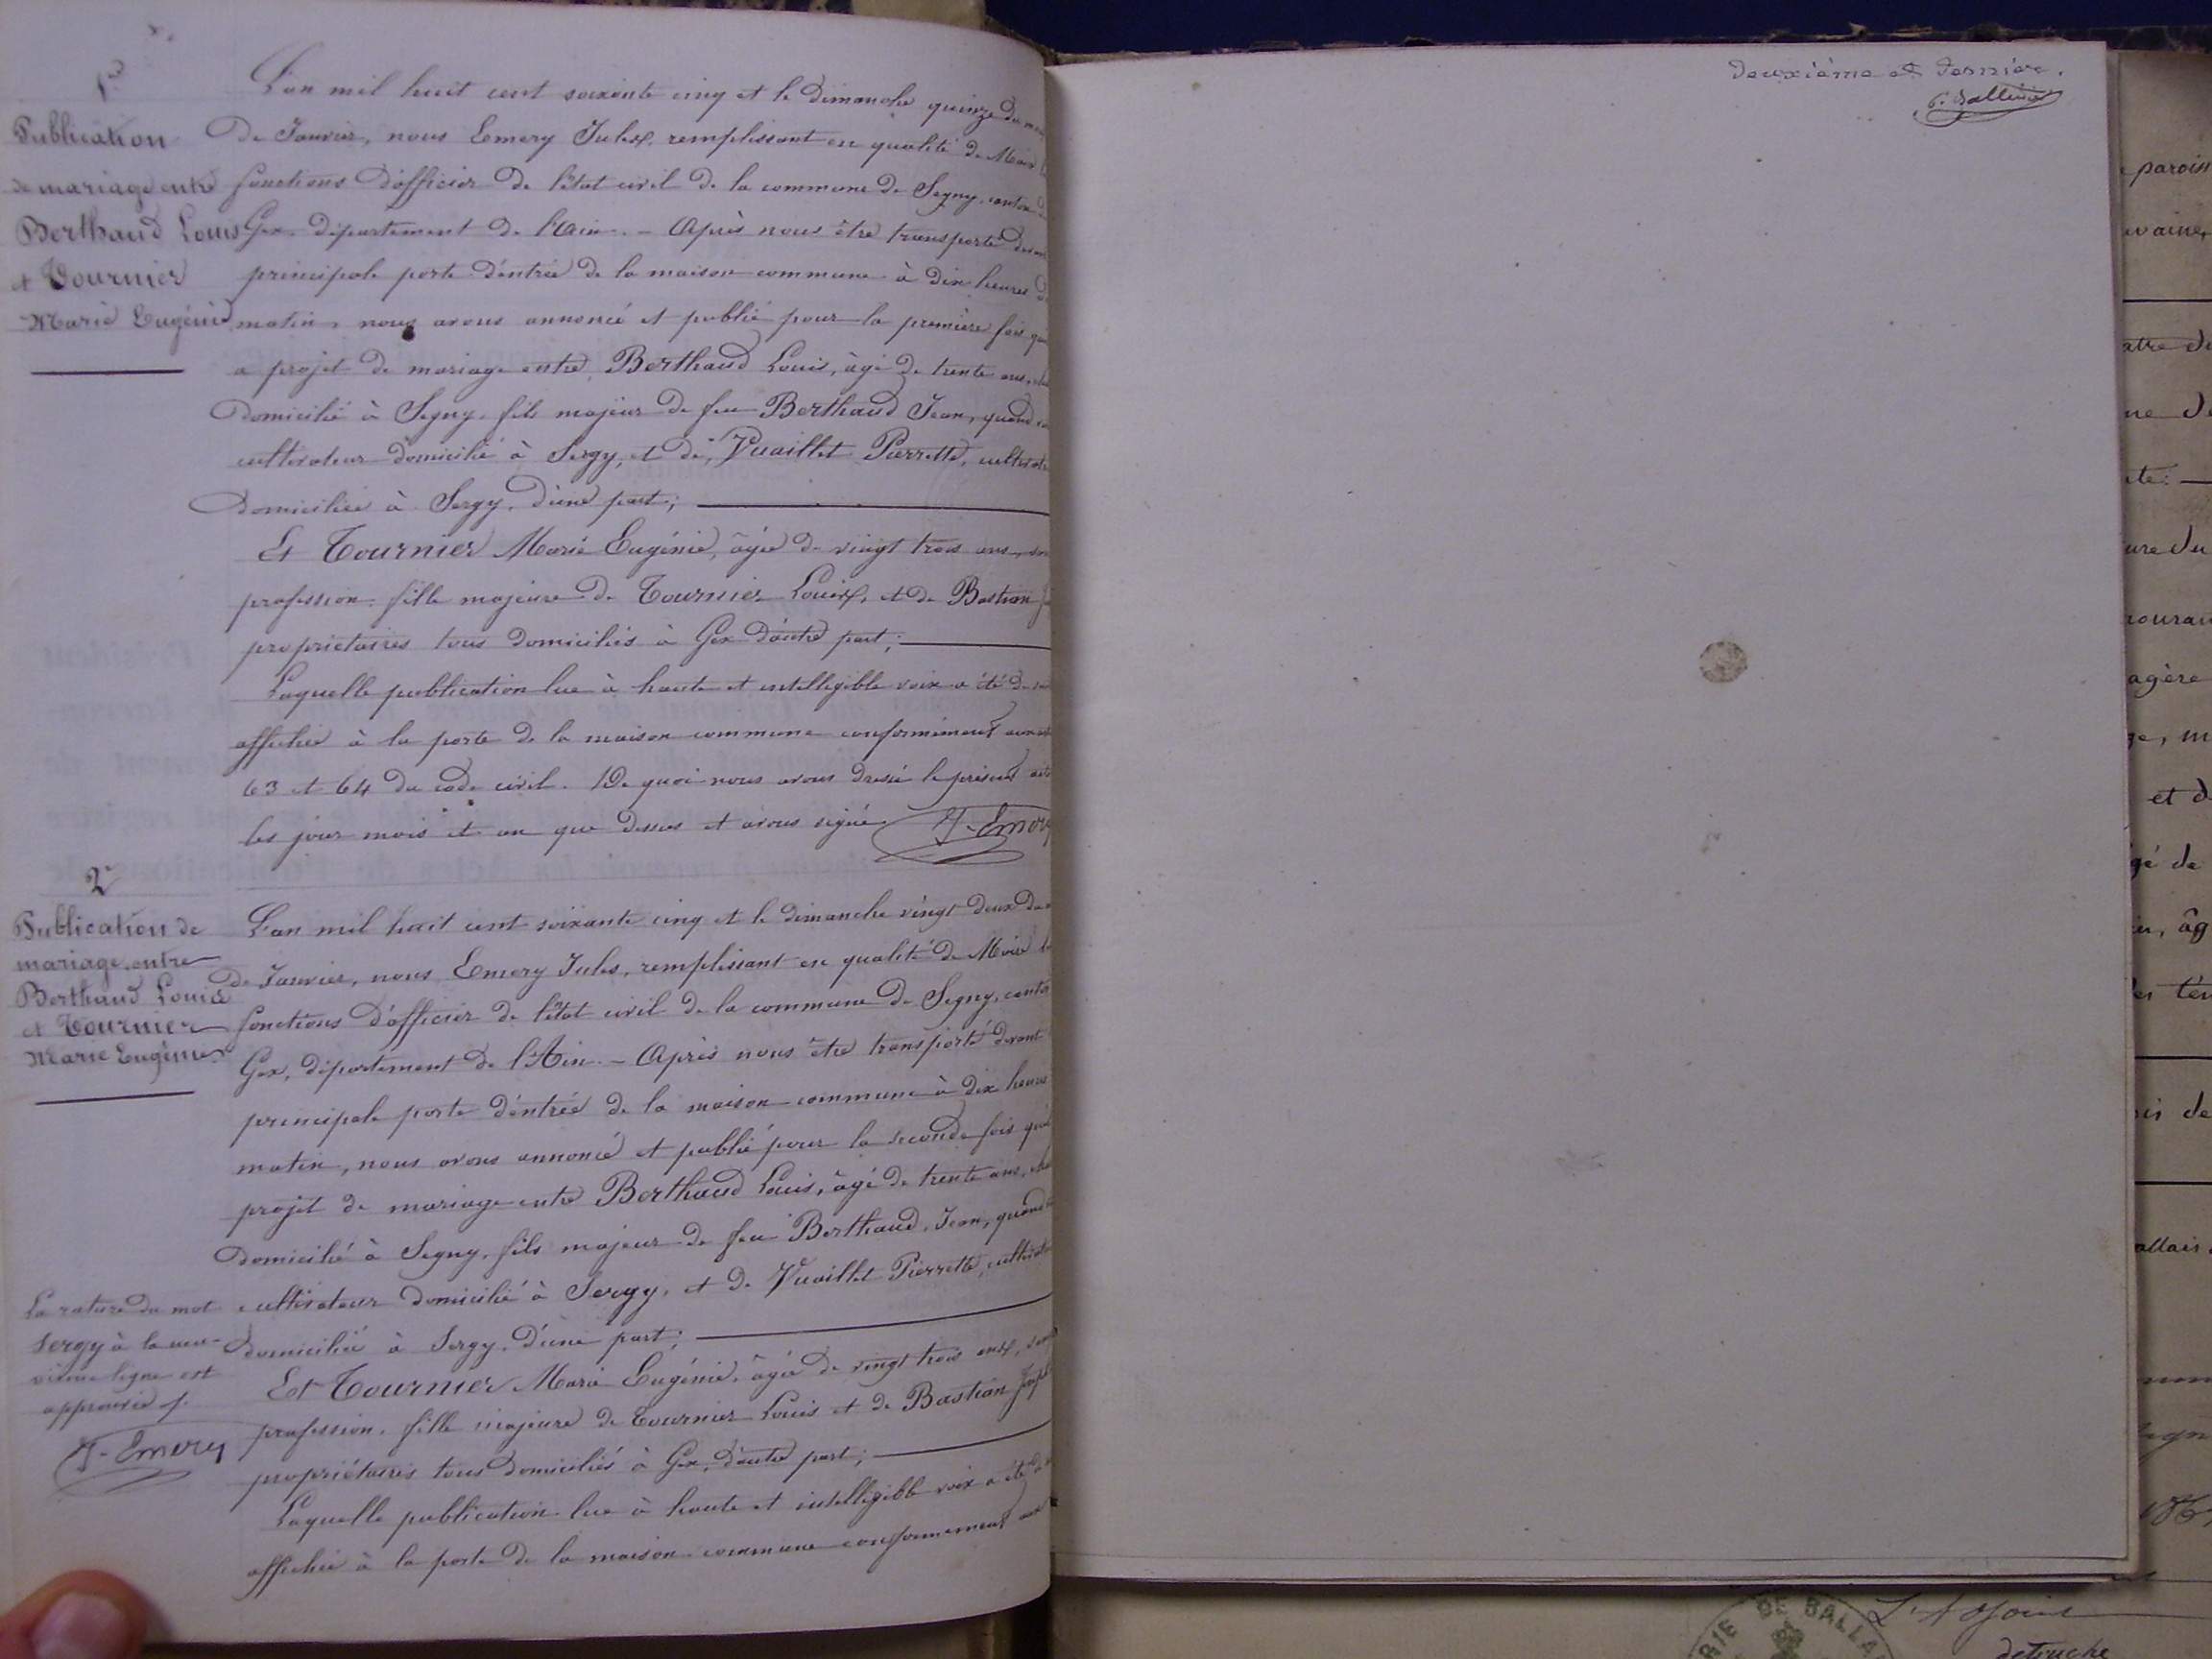 1re
Publication
de mariage entre
Berthaud Louis
et Tournier
Marie Eugénie
L'an mil huit cent soixante cinq et le dimanche quinze du mois
de Janvier, nous Emery Jules, remplissant en qualité de Maire
fonctions d'officier de l'état civil de la commune de Segny, canton de
Gex, département de l'Ain. - Après nous être transporté devant
principale porte d'entrée de la maison commune à dix heures du
matin, nous avons annoncé et publié pour la première fois qu'il
a projet de mariage entre Berthaud Louis, âgé de trente ans,
domicilié à Segny, fils majeur de feu Berthaud Jean, quand
cultivateur domicilié à Sergy, et de Vuaillet Pierrette,
domiciliée à Sergy, d'une part;
Et Tournier Marie Eugénie, âgée de vingt trois ans,
profession, fille majeure de Tournier Louis, et de Bastian
propriétaires tous domiciliés à Gex d'autre part;
Laquelle publication lue à haute et intelligible voix a été de
affichée à la porte de la maison commune conformément aux
63 et 64 du code civil. De quoi nous avons dressé le présent acte
les jour mois et an que dessus et avons signé J. Emery
2e
Publication de
mariage entre
Berthaud Louis
et Tournier
Marie Eugénie
L'an mil huit cent soixante cinq et le dimanche vingt deux du
de Janvier, nous Emery Jules, remplissant en qualité de Maire
fonctions d'officier de l'état civil de la commune de Segny, canton
Gex, département de l'Ain. - Après nous être transporté devant
principale porte d'entrée de la maison commune à dix heures
matin, nous avons annoncé et publié pour la seconde fois qu'il
projet de mariage entre Berthaud Louis, âgé de trente ans,
domicilié à Segny, fils majeur de feu Berthaud Jean, quand
cultivateur domicilié à Sergy, et de Vuaillet Pierrette,
domiciliée à Sergy, d'une part;
Et Tournier Marie Eugénie, âgée de vingt trois ans,
profession, fille majeure de Tournier Louis et de Bastian
propriétaires tous domiciliés à Gex, d'autre part;
Laquelle publication lue à haute et intelligible voix a été
affichée à la porte de la maison commune conformément aux
La rature du mot
Sergy à la neu-
vième ligne est
approuvée
J. Emery
Deuxième et dernière.
paroiss
ure du
agère
et d
gé de
L'Adjoint
detruche
RIE DE BALLA